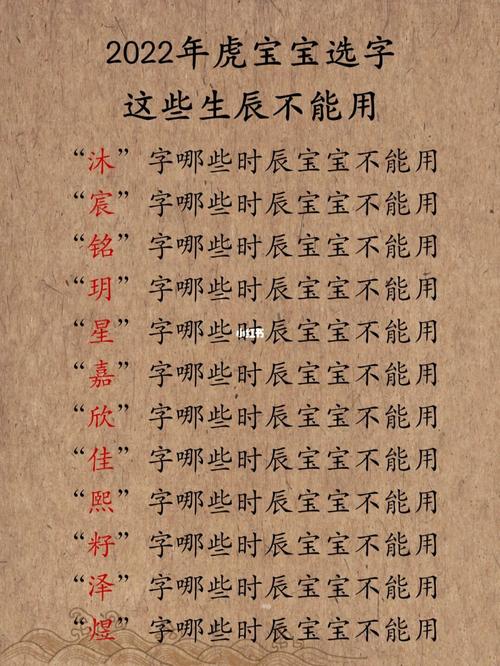 2022年虎宝宝选字
这些生辰不能用
“沐”字哪些时辰宝宝不能用
“宸”字哪些时辰宝宝不能用
“铭”字哪些时辰宝宝不能用
“玥”字哪些时辰宝宝不能用
“星”字哪些时辰宝宝不能用
小红书
“嘉”字哪些时辰宝宝不能用
“欣”字哪些时辰宝宝不能用
“佳”字哪些时辰宝宝不能用
“熙”字哪些时辰宝宝不能用
“籽”字哪些时辰宝宝不能用
“泽”字哪些时辰宝宝不能用
“煜”字哪些时辰宝宝不能用